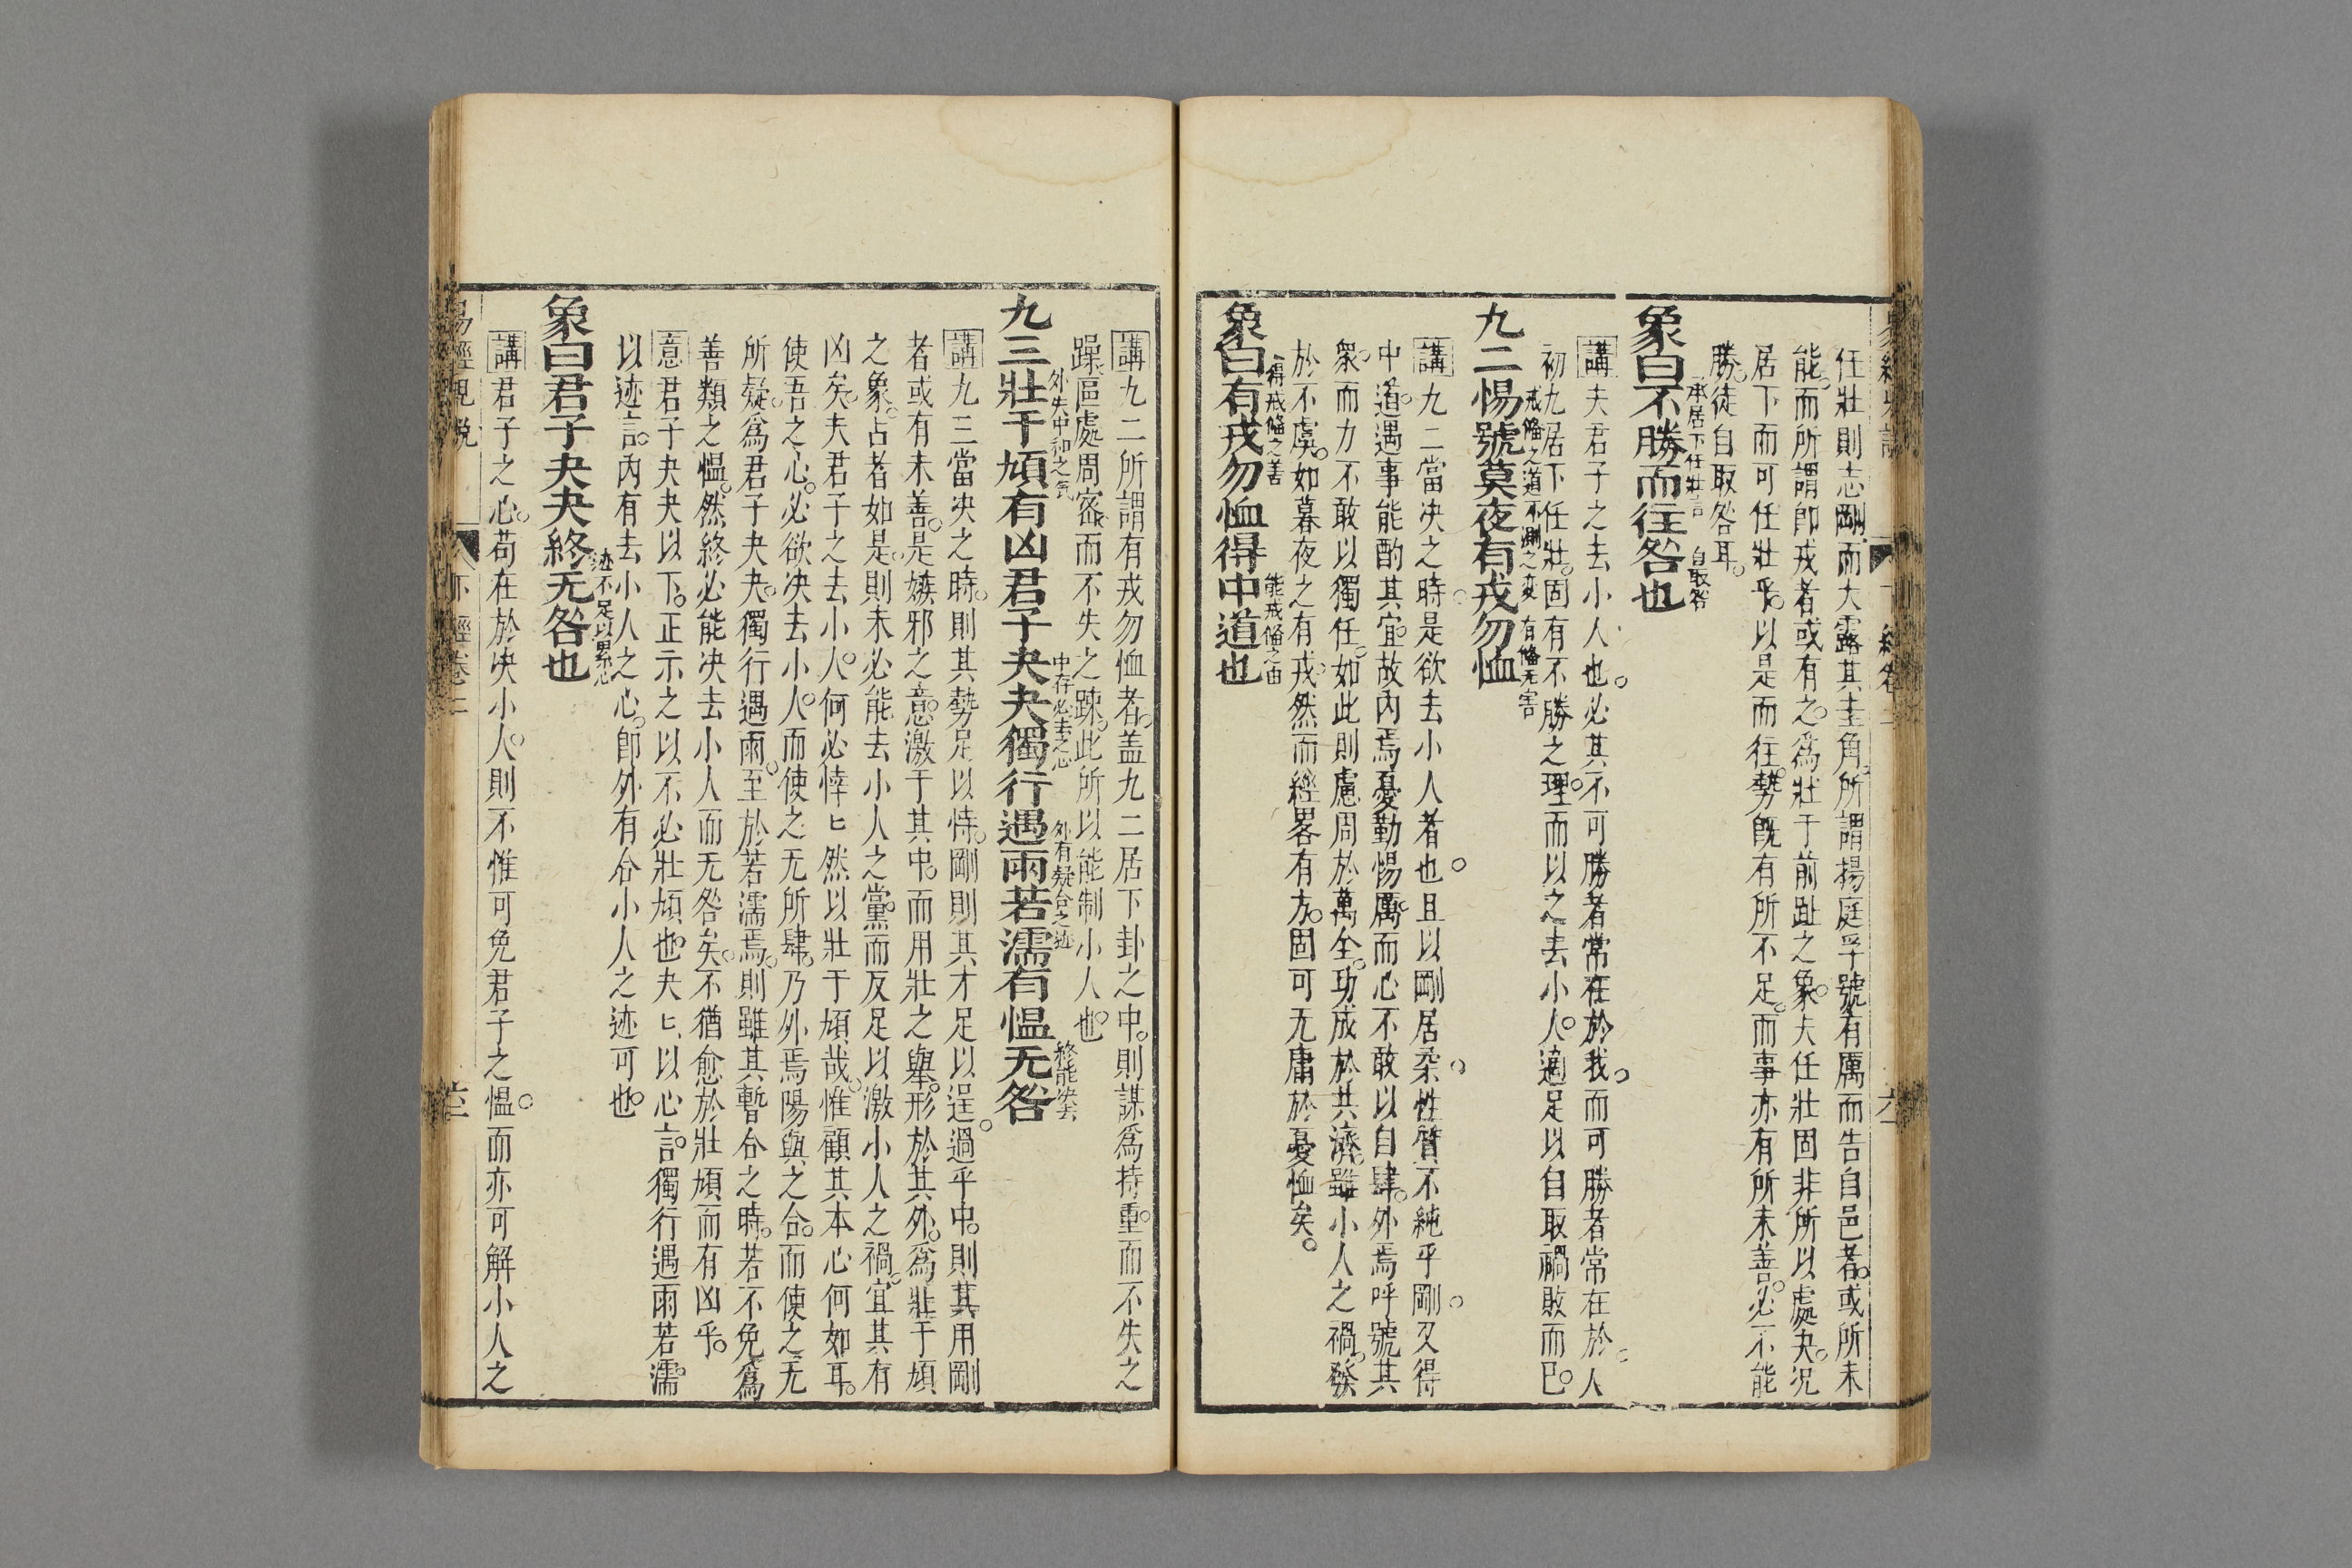 任壯則志剛而大露其圭角所謂揚庭孚號有厲而告自邑者或所未
能而所謂卽戎者或有之爲壯于前趾之象夫任壯固非所以處夬況
居下而可任壯乎以是而往勢旣有所不足而事亦有所未善必不能
勝徒自取咎耳
承居下任壯言 自取咎
象曰不勝而往咎也
講夫君子之去小人也必其不可勝者常在於我而可勝者常在於人
初九居下任壯固有不勝之理而以之去小人適足以自取禍敗而已
戒備之道不測之変 有備无害
九二惕號莫夜有戎勿恤
講九二當决之時是欲去小人者也且以剛居柔性質不純乎剛又得
中道遇事能酌其宜故內焉憂勤惕厲而心不敢以自肆外焉呼號其
衆而力不敢以獨任如此則慮周於萬全功成於共濟雖小人之禍發
於不虞如暮夜之有戎然而經畧有方固可无庸於憂恤矣
得戒備之善 能戒備之由
象曰有戎勿恤得中道也
講九二所謂有戎勿恤者盖九二居下卦之中則謀爲持重而不失之
躁區處周宻而不失之踈此所以能制小人也
外失中和之氣 中存必去之心 外有疑合之迹 終能决去
九三壯于頄有凶君子夬夬獨行遇雨若濡有愠无咎
講九三當决之時則其勢足以恃剛則其才足以逞過乎中則其用剛
者或有未善是嫉邪之意激于其中而用壯之舉形於其外爲壯于頄
之象占者如是則未必能去小人之黨而反足以激小人之禍宜其有
凶矣夫君子之去小人何必悻匕然以壯于頄哉惟顧其本心何如耳
使吾之心必欲决去小人而使之无所肆乃外焉陽與之合而使之无
所疑爲君子夬夬獨行遇雨至於若濡焉則雖其暫合之時若不免爲
善類之愠然終必能决去小人而无咎矣不猶愈於壯頄而有凶乎
意君子夬夬以下正示之以不必壯頄也夬匕以心言獨行遇雨若濡
以迹言內有去小人之心卽外有合小人之迹可也
迹不足以累心
象曰君子夬夬終无咎也
講君子之心苟在於决小人則不惟可免君子之愠而亦可解小人之